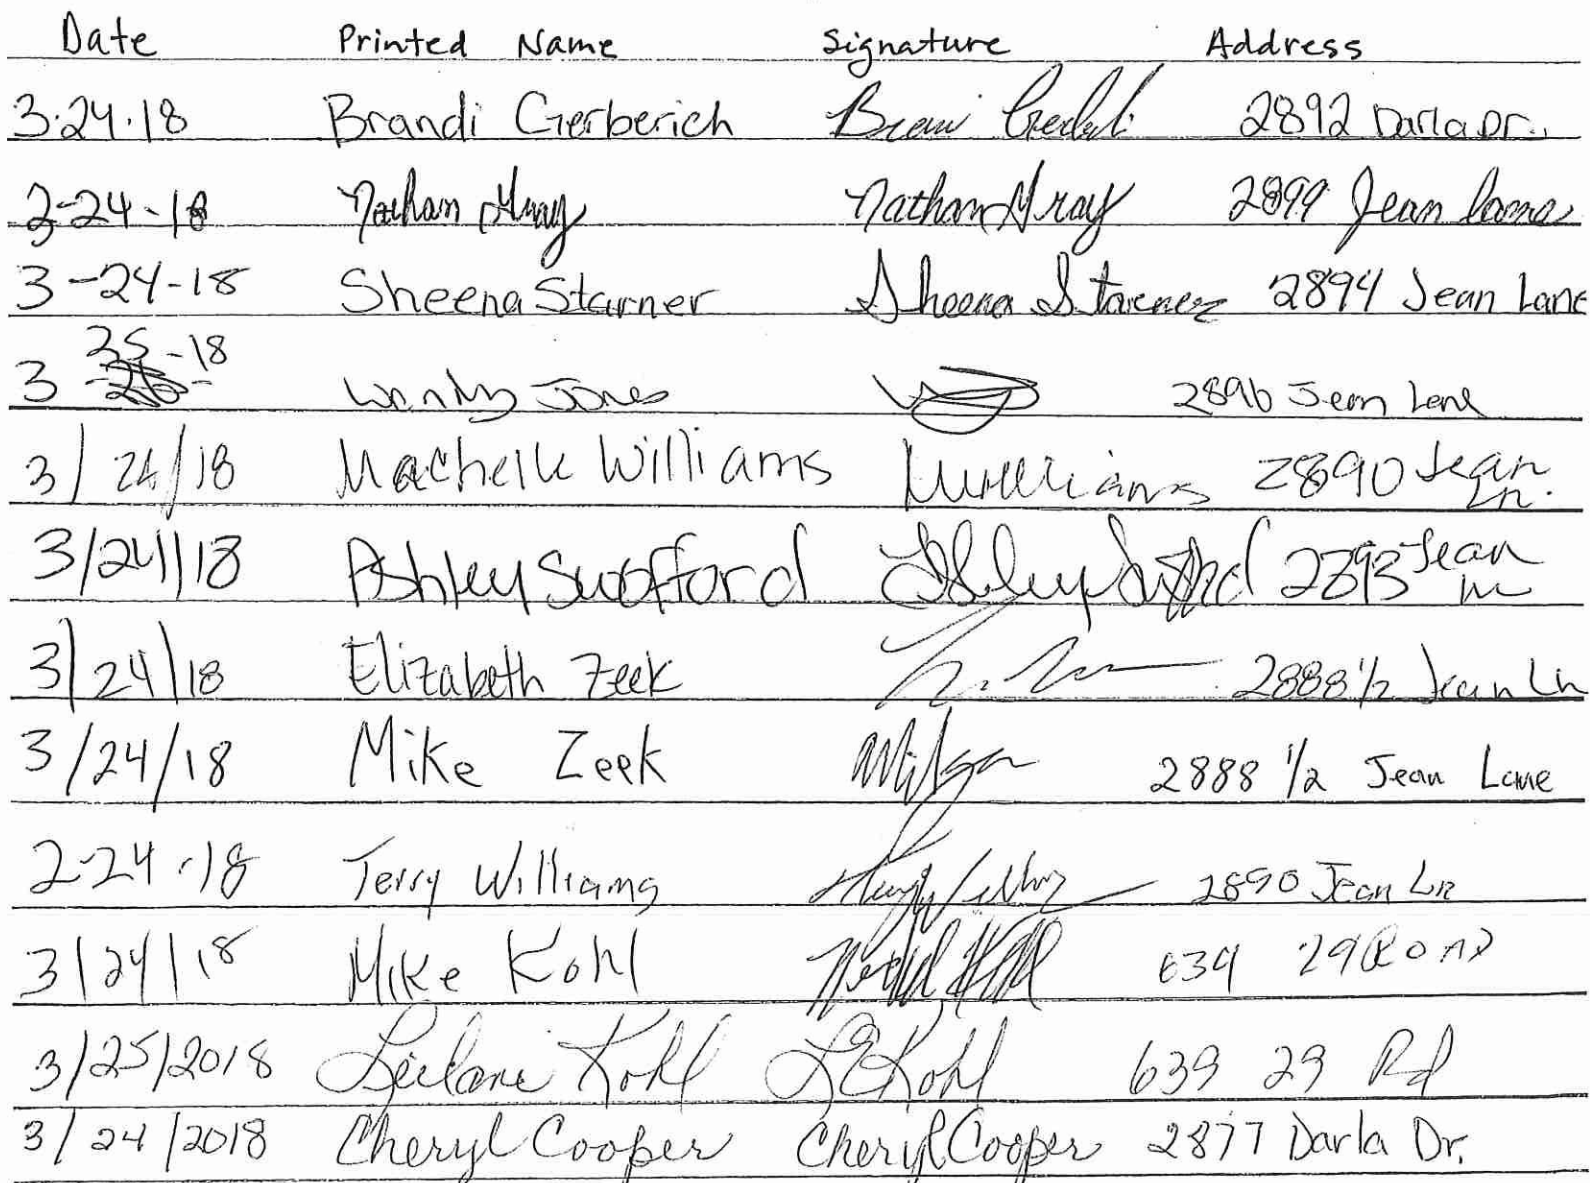 Date Printed Name Signature Address
3.24.18 Brandi Gerberich 2892 Darla Dr.
3-24-18 Nathan Gray Nathan Gray 2899 Jean Lane
3-24-18 Sheena Starner Sheena Starner 2894 Jean Lane
3 25-18 Wendy Jones 2896 Jean Lane
3/24/18 Machelle Williams MWilliams 2890 Jean Ln.
3/24/18 Ashley Swofford Ashley Swofford 2893 Jean ln
3/24/18 Elizabeth Zeek 2888 1/2 Jean Ln
3/24/18 Mike Zeek 2888 1/2 Jean Lane
2-24-18 Terry Williams Terry Williams 2890 Jean Ln
3/24/18 Mike Kohl 639 29 ROAD
3/25/2018 Leilani Kohl LEKohl 639 29 Rd
3/24/2018 Cheryl Cooper Cheryl Cooper 2877 Darla Dr.